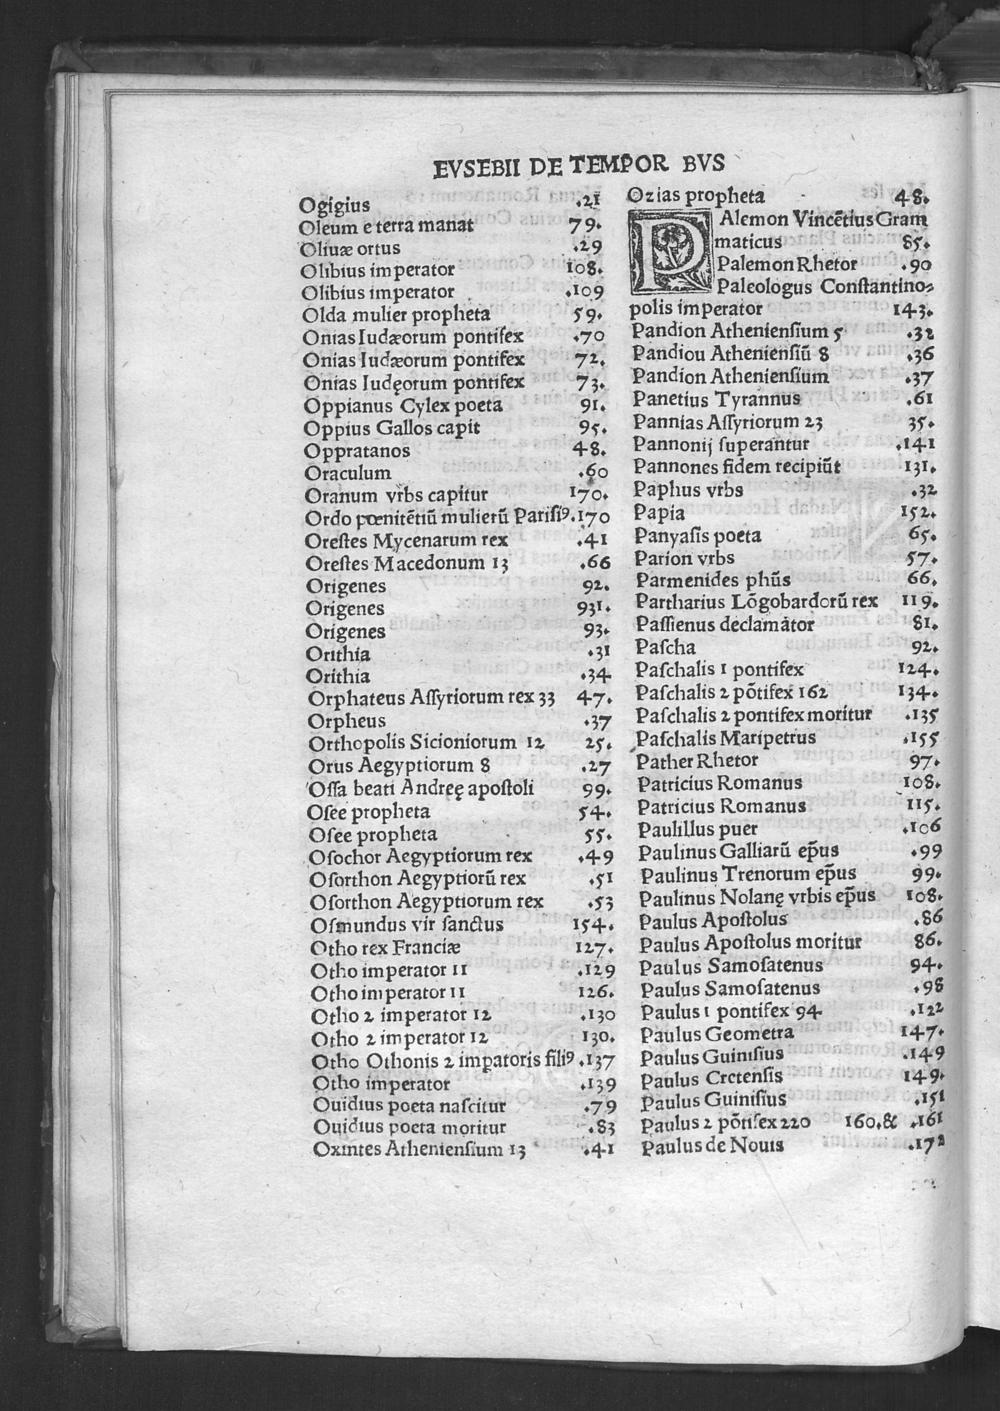 EVSEBII DE TEMPOR BVS
Ogigius .21
Oleum e terra manat 79.
Oliuæ ortus .29
Olibius imperator 108.
Olibius imperator .109
Olda mulier propheta 59.
Onias Iudæorum pontifex .70
Onias Iudæorum pontifex 72.
Onias Iudęorum pontifex 73.
Oppianus Cylex poeta 91.
Oppius Gallos capit 95.
Oppratanos 48.
Oraculum .60
Oranum vrbs capitur 170.
Ordo pœnitētiū mulierū Parisiꝰ .170
Orestes Mycenarum rex .41
Orestes Macedonum 13 .66
Origenes 92.
Origenes 931.
Origenes 93.
Orithia .31
Orithia .34
Orphateus Assyriorum rex 33 47.
Orpheus .37
Orthopolis Sicioniorum 12 25.
Orus Aegyptiorum 8 .27
Ossa beati Andręę apostoli 99.
Osee propheta 54.
Osee propheta 55.
Osochor Aegyptiorum rex .49
Osorthon Aegyptiorū rex .51
Osorthon Aegyptiorum rex .53
Osmundus vir sanctus 154.
Otho rex Franciæ 127.
Otho imperator 11 .129
Otho imperator 11 126.
Otho 2 imperator 12 .130
Otho 2 imperator 12 130.
Otho Othonis 2 impatoris filiꝰ .137
Otho imperator .139
Ouidius poeta nascitur .79
Ouidius poeta moritur .83
Oxintes Atheniensium 13 .41
Ozias propheta 48.
PAlemon Vincētius Gram
maticus 85.
Palemon Rhetor .90
Paleologus Constantino⸗
polis imperator 143.
Pandion Atheniensium 5 .32
Pandiou Atheniensiū 8 .36
Pandion Atheniensium .37
Panetius Tyrannus .61
Pannias Assyriorum 23 35.
Pannonij superantur .141
Pannones fidem recipiūt 131.
Paphus vrbs .32
Papia 152.
Panyasis poeta 65.
Parion vrbs 57.
Parmenides phūs 66.
Partharius Lōgobardorū rex 119.
Passienus declamator 81.
Pascha 92.
Paschalis 1 pontifex 124.
Paschalis 2 pōtifex 162 134.
Paschalis 2 pontifex moritur .135
Paschalis Maripetrus .155
Pather Rhetor 97.
Patricius Romanus 108.
Patricius Romanus 115.
Paulillus puer .106
Paulinus Galliarū ep̄us .99
Paulinus Trenorum ep̄us 99.
Paulinus Nolanę vrbis ep̄us 108.
Paulus Apostolus .86
Paulus Apostolus moritur 86.
Paulus Samosatenus 94.
Paulus Samosatenus .98
Paulus 1 pontifex 94 .122
Paulus Geometra 147.
Paulus Guinisius .149
Paulus Cretensis 149.
Paulus Guinisius .151
Paulus 2 pōtifex 220 160.& .161
Paulus de Nouis .172